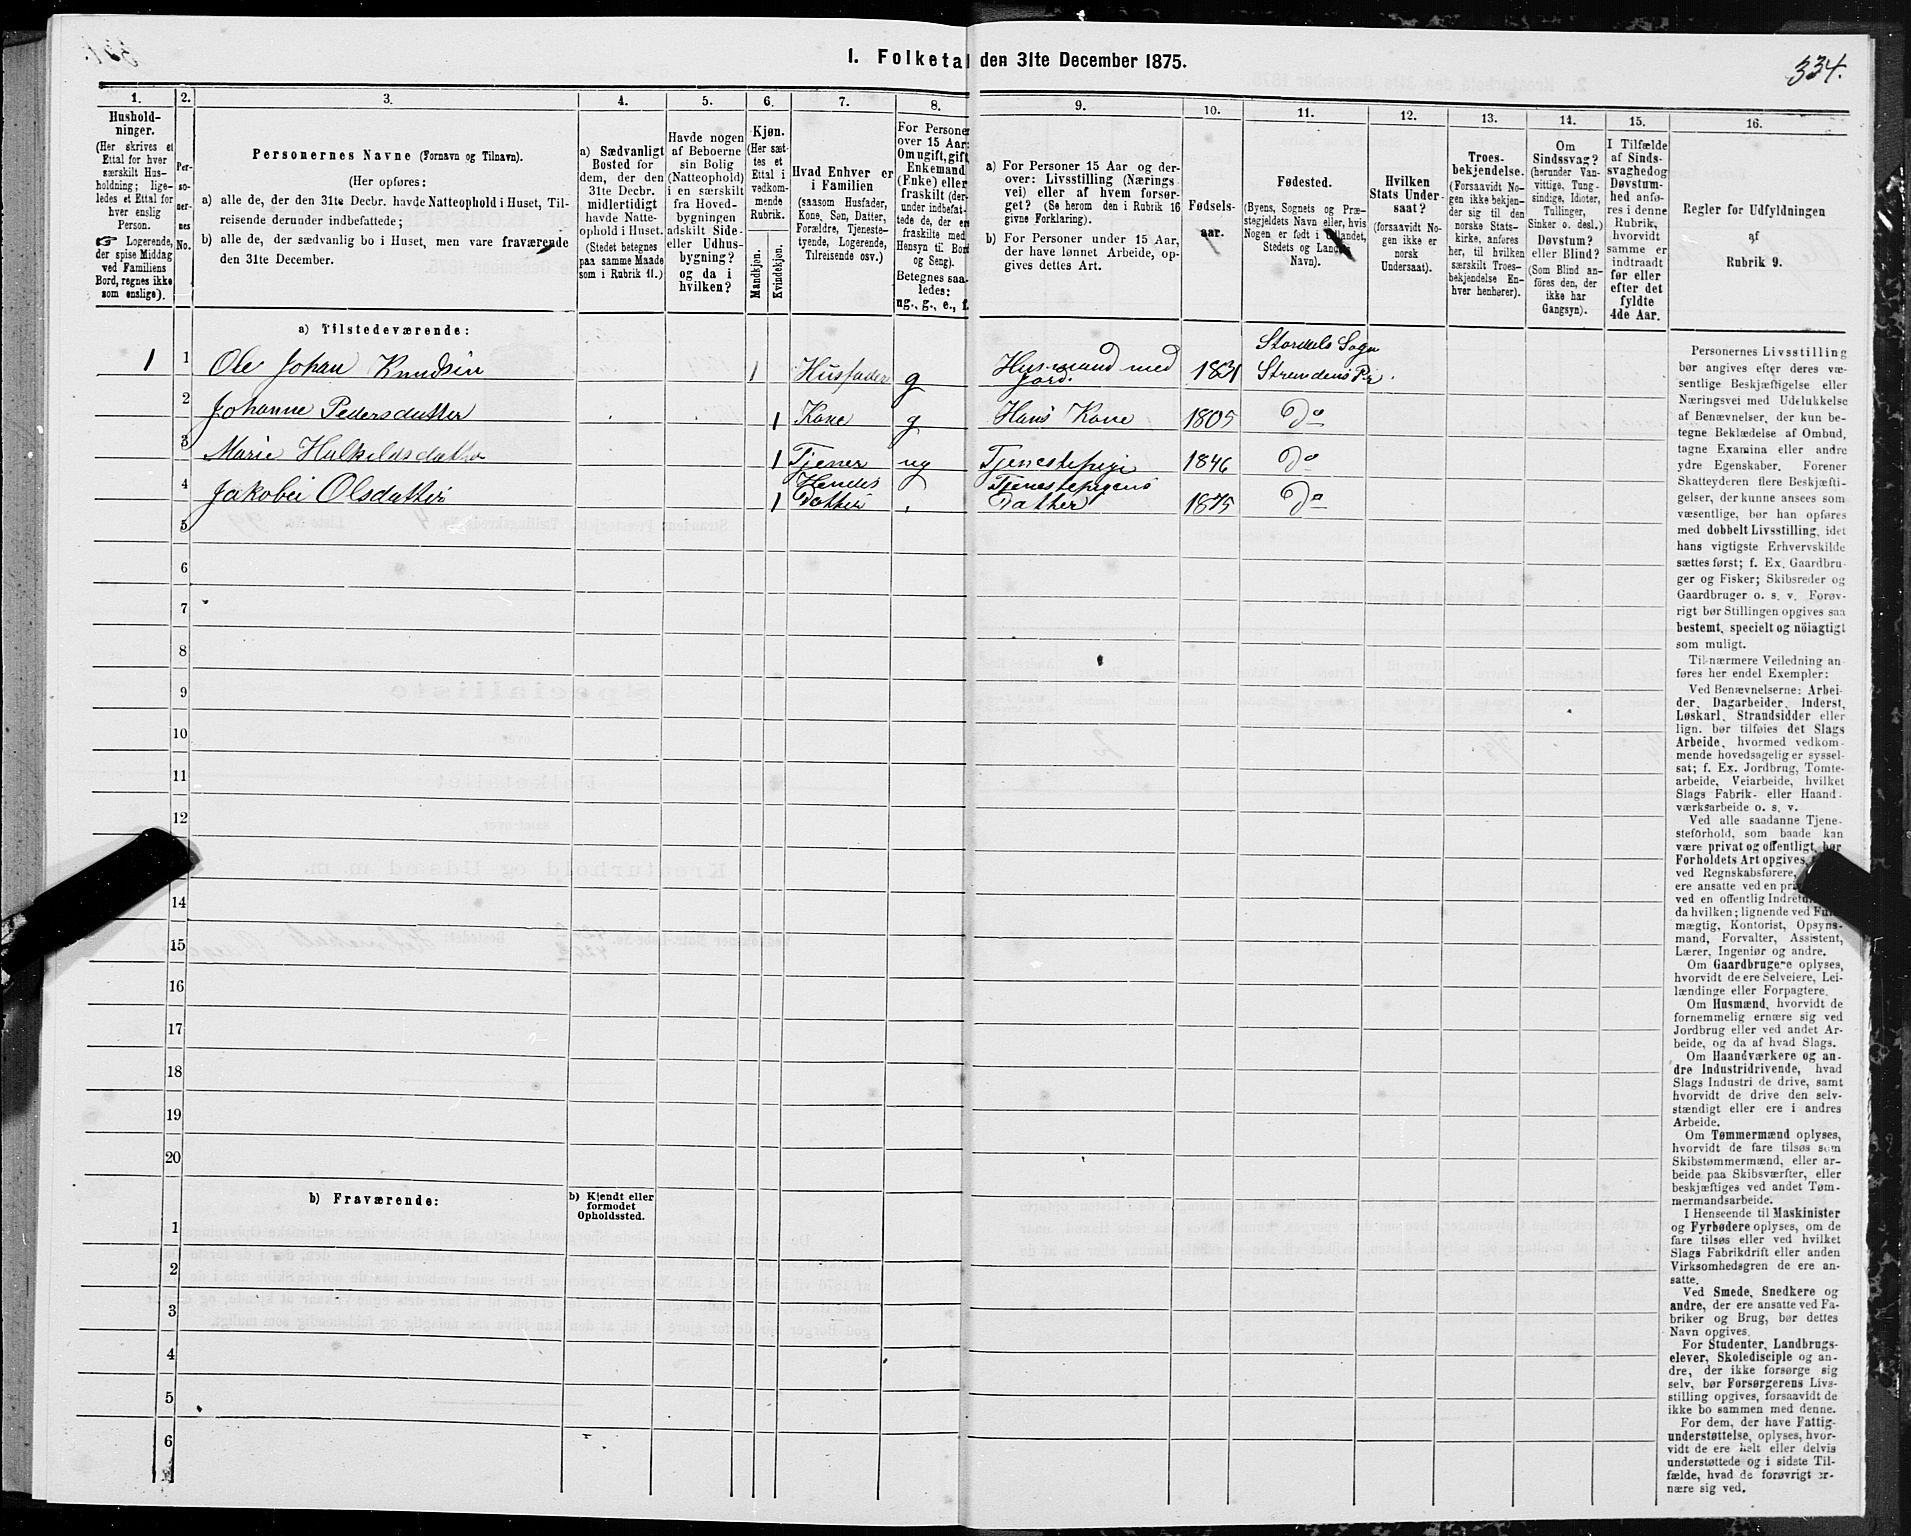 I. Folketal den 31te December 1875.
334.
1.
Hushold-
ninger.
(Her skrives et
Ettal for hver
særskilt Hus-
holdning; lige-
ledes et Ettal for
hver enslig
Person.
☞ Logerende,
der spise Middag
ved Familiens
Bord, regnes ikke
som enslige).
2.
Per-
so-
ner-
nes
No.
3.
Personernes Navne (Fornavn og Tilnavn).
(Her opføres:
a) alle de, der den 31te Decbr. havde Natteophold i Huset, Til-
reisende derunder indbefattede;
b) alle de, der sædvanlig bo i Huset, men vare fraværende
den 31te December.
4.
a) Sædvanligt
Bosted for
dem, der den
31te Decbr.
midlertidigt
havde Natte-
ophold i Huset.
(Stedet betegnes
paa samme Maade
som i Rubrik 11.)
5.
Havde nogen
af Beboerne
sin Bolig
(Natteophold)
i en særskilt
fra Hoved-
bygningen
adskilt Side-
eller Udhus-
bygning?
og da i
hvilken?
6.
Kjøn.
(Her sæt-
tes et
Ettal i
vedkom-
mende
Rubrik.
Mandkjøn.
Kvindekjøn.
7.
Hvad Enhver er
i Familien
(saasom Husfader,
Kone, Søn, Datter,
Forældre, Tjeneste-
tyende, Logerende,
Tilreisende osv.)
8.
For Persone
over 15 Aar:
Om ugift, gift
Enkemand
(Enke) eller
fraskilt (der-
under indbefat-
tede de, der er
fraskilte med
Hensyn til Bord
og Seng).
Betegnes saa-
ledes:
ug., g., e., f.
9.
a) For Personer 15 Aar og der-
over: Livsstilling (Nærings
vei) eller af hvem forsør-
get? (Se herom den i Rubrik 16
givne Forklaring).
b) For Personer under 15 Aar,
der have lønnet Arbeide, op-
gives dettes Art.
10.
Fødsels-
aar.
11.
Fødested.
(Byens, Sognets og Præ-
stegjeldets Navn eller, hvis
Nogen er født i Udlandet,
Stedets og Landets
Navn).
12.
Hvilken
Stats Under-
saat?
(forsaavidt No-
gen ikke er
norsk
Undersaat).
13.
Troes-
bekjendelse.
(Forsaavidt No-
gen ikke bekjen-
der sig til den
norske Stats-
kirke, anføres
her, til hvilken
særskilt Troes-
bekjendelse En-
hver henhører).
14.
Om
Sindssvag?
(herunder Van-
vittige, Tung-
sindige, Idioter,
Tullinger,
Sinker o. desl.)
Døvstum?
eller Blind?
(Som Blind an-
føres den, der
ikke har
Gangsyn).
15.
I Tilfælde
af Sinds-
svaghed og
Døvstum-
hed anfø-
res i denne
Rubrik,
hvorvidt
samme er
indtraadt
før eller
efter det
fyldte
4de Aar.
16.
Regler for Udfyldningen
af
Rubrik 9.
a) Tilstedeværende:
1 1 Ole Johan Knudsen 1 Husfader g Husmand med Jord. 1831 Stordals Sogn Strandens Pr.
2 Johanne Pedersdatter 1 Kone g Hans Kone 1805 Do
3 Marie Halkildsdatter 1 Tjener ug Tjenestepige 1846 Do
4 Jakobei Olsdatter 1 Hendes Datter Tjenestepigens Datter 1875 Do
5
6
7
8
9
10
11
12
14
15
16
17
18
19
20
b) Fraværende:
b) Kjendt eller
formodet
Opholdssted.
1
2
3
4
5
6
Personernes Livsstilling
bør angives efter deres væ-
sentlige Beskjæftigelse eller
Næringsvei med Udelukkelse
af Benævnelser, der kun be-
tegne Beklædelse af Ombud,
tagne Examina eller andre
ydre Egenskaber. Forener
Skatteyderen flere Beskjæfti-
gelser, der kunne ansees som
væsentlige, bør han opføres
med dobbelt Livsstilling, idet
hans vigtigste Erhvervskilde
sættes først; f. Ex. Gaardbru-
ger og Fisker; Skibsreder og
Gaardbruger o. s. v. Forøv-
rigt bør Stillingen opgives saa
bestemt, specielt og nöiagtigt
som muligt.
Til nærmere Veiledning an-
føres her endel Exempler:
Ved Benævnelserne: Arbei-
der, Dagarbeider, Inderst,
Løskarl, Strandsidder eller
lign. bør tilføies det Slags
Arbeide, hvormed vedkom-
mende hovedsagelig er syssel-
sat; f. Ex. Jordbrug, Tomte-
arbeide, Veiarbeide, hvilket
Slags Fabrik- eller Haand-
værksarbeide o. s. v.
Ved alle saadanne Tjene-
steforhold, som baade kan
være privat og offentligt, bør
Forholdets Art opgives,
ved Regnskabsførere,
ere ansatte ved en pri
ved en offentlig Indret
da hvilken; lignende ved Fuld-
mægtig, Kontorist, Opsyns-
mand, Forvalter, Assistent,
Lærer, Ingeniør og andre.
Om Gaardbrugere oplyses,
hvorvidt de ere Selveiere, Lei-
lændinge eller Forpagtere.
Om Husmænd, hvorvidt de
fornemmelig ernære sig ved
Jordbrug eller ved andet Ar-
beide, og da af hvad Slags.
Om Haandværkere og an-
dre Industridrivende, hvad
Slags Industri de drive, samt
hvorvidt de drive den selv-
stændigt eller ere i andres
Arbeide.
Om Tømmermænd oplyses,
hvorvidt de fare tilsøs som
Skibstømmermænd, eller ar-
beide paa Skibsværfter, eller
beskjæftiges ved andet Tøm-
mermandsarbeide.
I Henseende til Maskinister
og Fyrbødere oplyses, om de
fare tilsøs eller ved hvilket
Slags Fabrikdrift eller anden
Virksomhedsgren de ere an-
satte.
Ved Smede, Snedkere og
andre, der ere ansatte ved Fa-
briker og Brug, bør dettes
Navn opgives.
For Studenter, Landbrugs-
elever, Skoledisciple og an-
dre, der ikke forsørge sig
selv, bør Forsørgerens Livs-
stilling opgives, forsaavidt de
ikke bo sammen med denne.
For dem, der have Fattig-
understøttelse, oplyses, hvor-
vidt de ere helt eller delvis
understøttede og i sidste Til-
fælde, hvad de forøvrigt er-
nære sig ved.